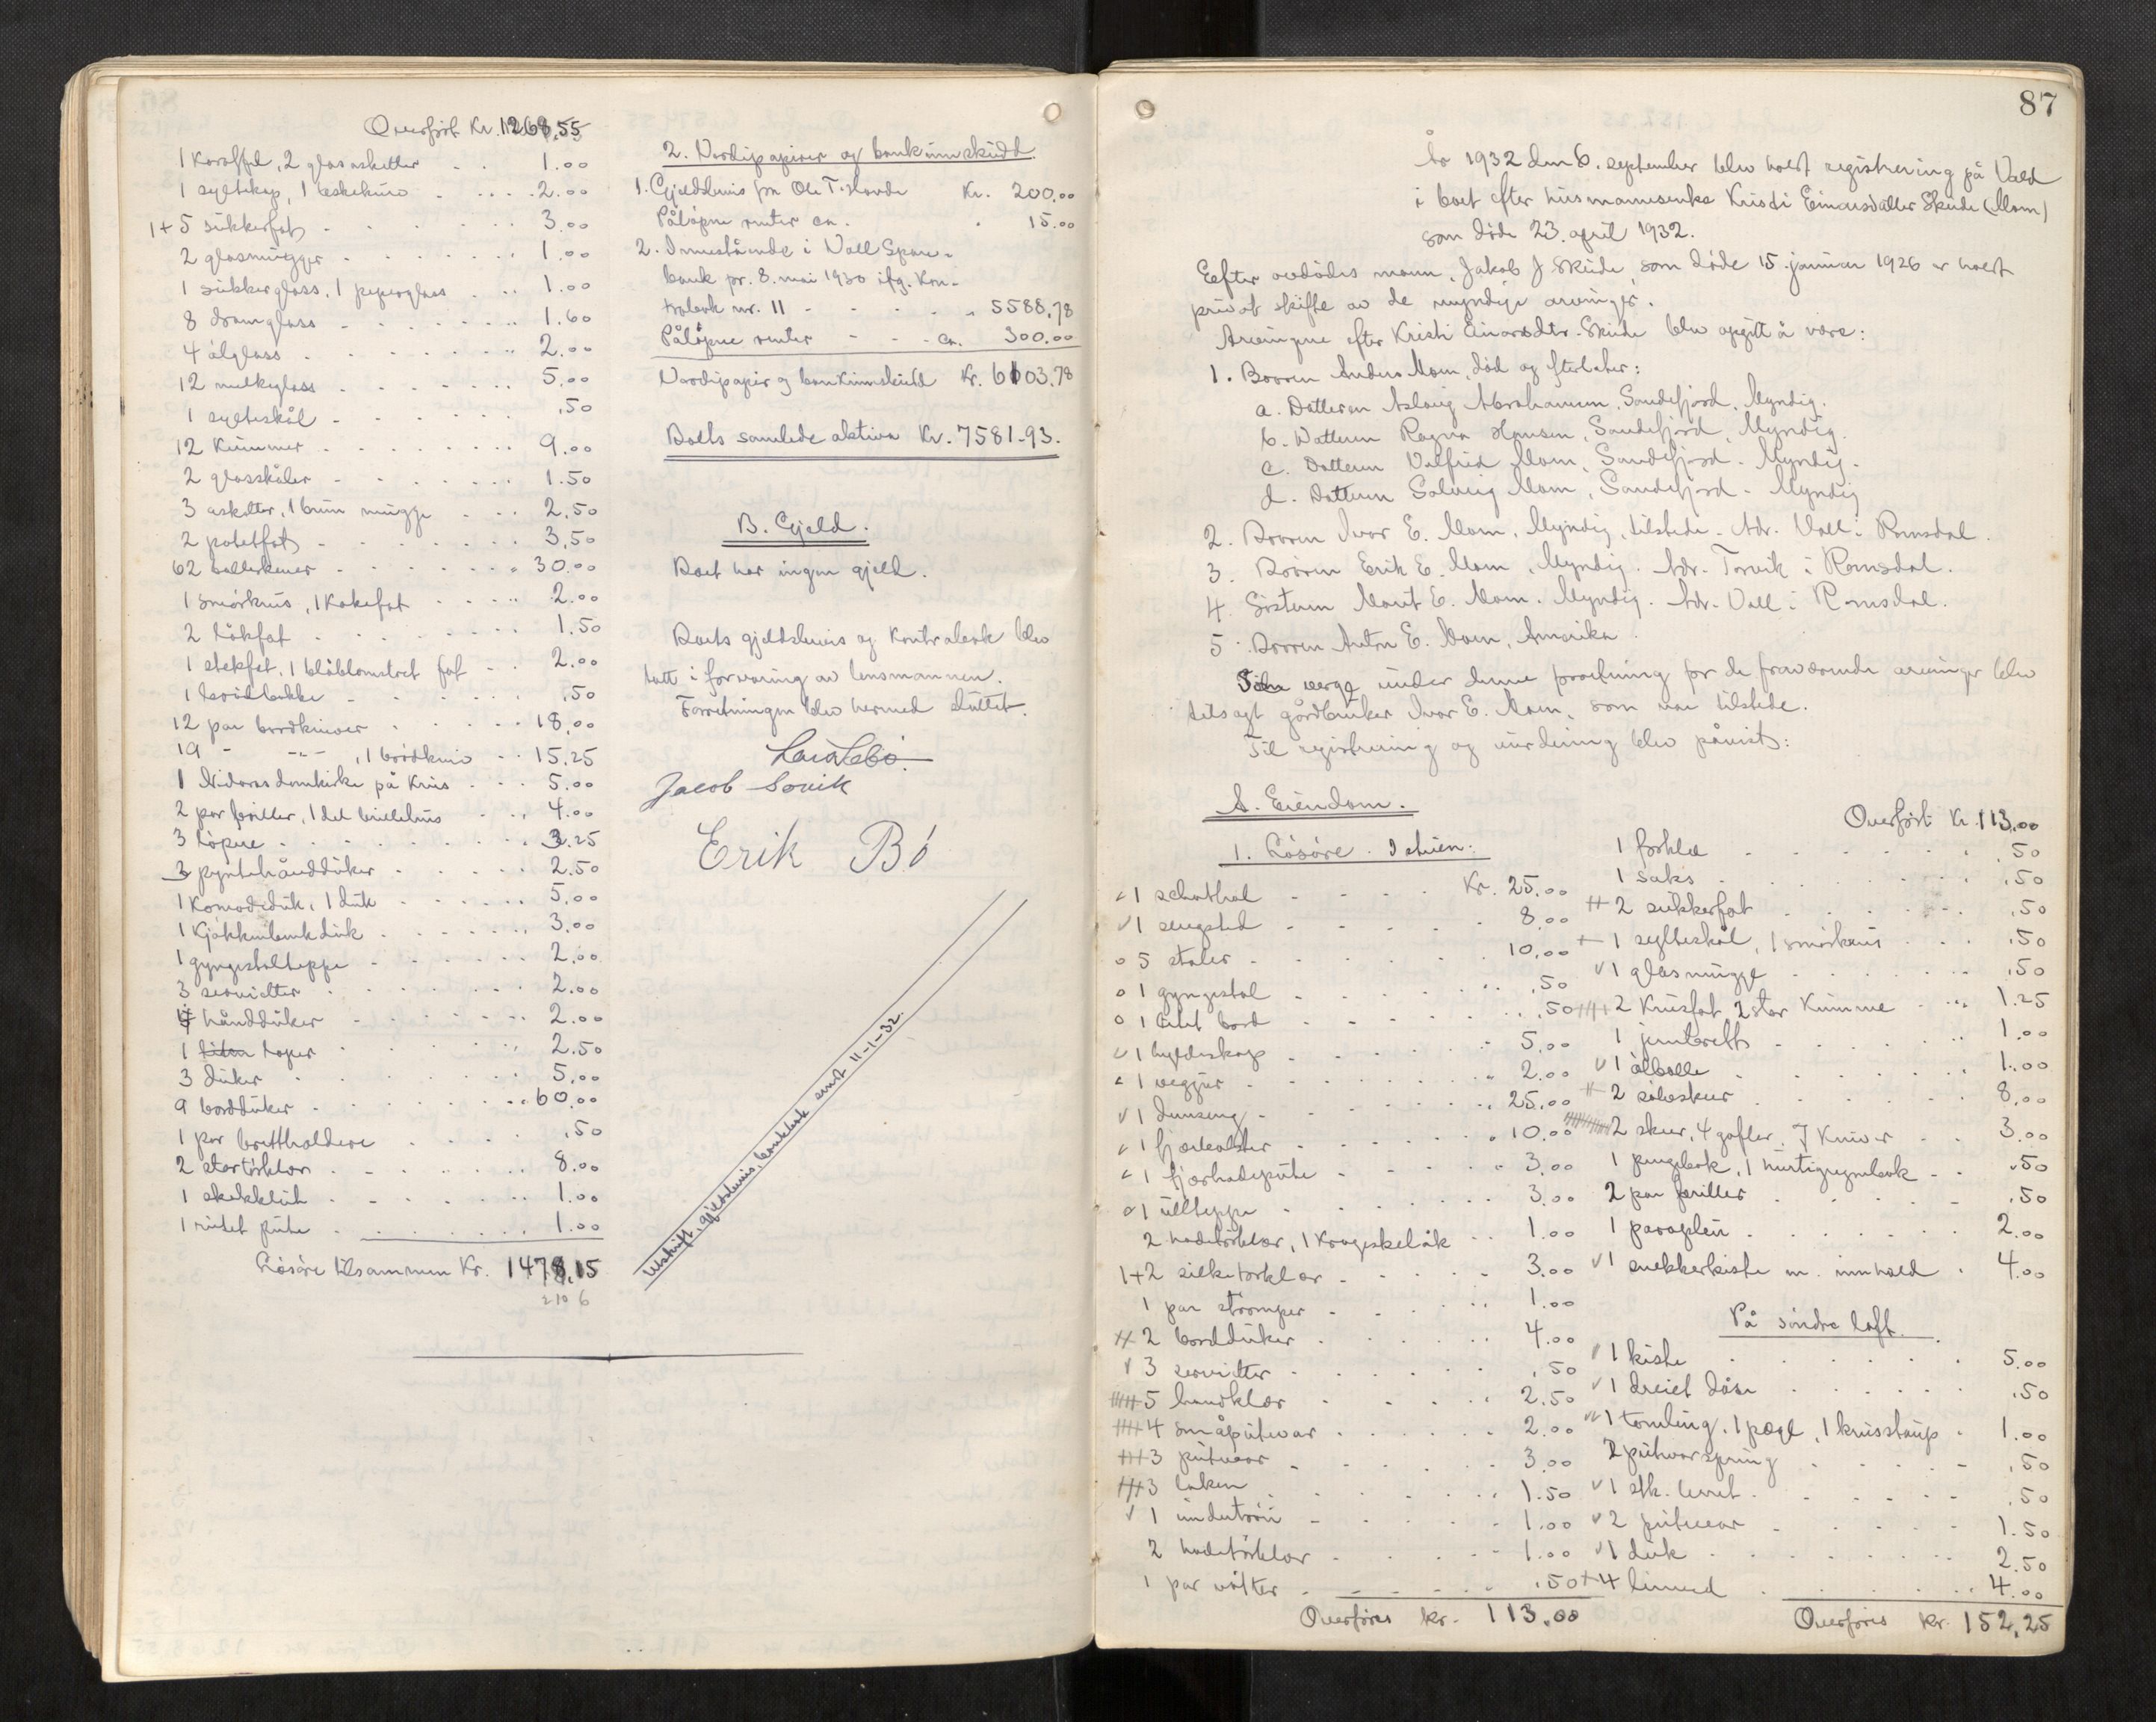 Overført Kr. 1268,55
1 Karaffel, 2 glasasketter 1.00
1 syltekop, 1 2.00
1+5 sukkerfat 3.00
2 glasmugger 1.00
1 sukkerglass, 1 peperglass 1.00
8 dramglass 1.60
4 ølglass 2.00
12 melkeglass 5.00
1 sylteskål .50
12 Kummer 9.00
2 glasskåler 1.50
3 asketter, 1 brun mugge 2.50
2 potetfat 3.50
62 tallerkener 30.00
1 smørkrus, 1 Kakefat 2.00
2 låkfat 1.50
1 stekfat, 1 blåblomstret fat 2.00
1 .50
12 par bordkniver 18.00
19 - -"- , 1 brødkniv 15.25
1 Nidarosdomkirke på Krus 5.00
2 par briller, 1 del brillehus 4.00
3 løpere 3.25
3 pyntehåndduker 2.50
1 Komodeduk, 1 duk 5.00
1 Kjøkkenbenkduk 3.00
1 gyngestolteppe 2.00
3 servietter 2.00
4 håndduker 2.00
1 liten løper 2.50
3 duker 5.00
9 bordduker 60.00
1 par bretholdere .50
2 størtørklær 8.00
1 skoklut 1.00
1 rutet pute 1.00
Løsøre tilsammen Kr. 1478,15
210 6
2. Verdipapirer og bankinnskudd
1. Gjeldsbevis fra Ole T. Hovde Kr. 200.00
Påløpne renter ca. 15.00
2. Innestående i Voll Spare-
bank pr. 8. mai 1930 ifg. Kon-
trabok nr. 11 5588,78
Påløpne renter ca. 300.00
Verdipapir og bankinnskudd Kr. 6103,78
Boets samlede aktiva Kr. 7581-93.
B. Gjeld.
Boet har ingen gjeld.
Boets gjeldsbevis og Kontrabok blev
tatt i forvaring av lensmannen.
Forretningen blev hermed sluttet.
Jacob Sovik
Erik Bø
Utskrift, gjeldsbevis, bankbok sendt 11-1-32.
87
År 1932 den 6. september blev holdt registrering på Vold
i boet efter husmannsenke Kristi Einarsdatter Skeide (Moen)
som døde 23. april 1932.
Eefter avdødes mann, Jakob J Skeide, som døde 15. januar 1926 er holdt
privat skifte av de myndige arvinger.
Arvingene efter Kristi Einarsdtr. Skeide blev opgitt å være:
1. Broren Anders Moen, død og efterlater:
a. Datteren Aslaug Abrahamsen, Sandefjord. Myndig.
b. Datteren Ragna Hansen, Sandefjord, Myndig.
c. Datteren Valfrid Moen, Sandefjord - Myndig.
d. Datteren Solveig Moen, Sandefjord - Myndig
2. Broren Ivar E. Moen, Myndig, tilstede - Adr. Voll i Romsdal.
3. Broren Erik E. Moen, Myndig. Adr. Torvik i Romsdal.
4. Søsteren Marit E. Moen. Myndig. Adr. Voll i Romsdal.
5. Broren Anton E. Moen, Amerika.
Som verge under denne forretning for de fraværende arvinger blev
tilsagt gårdbruker Ivar E. Moen, som var tilstede.
Til registrering og vurdering blev påvist:
A. Eiendom.
1. Løsøre. I stuen:
1 schathol Kr. 25.00
1 sengsted 8.00
5 stoler 10.00
1 gyngestol .50
1 litet bord .50
1 hyldeskap 5.00
1 veggur 2.00
1 dunseng 25.00
1 fjærbolster 10.00
1 fjærhodepute 3.00
1 ullteppe 3.00
2 hodetørklær, 1 Krageskolåk 1.00
1+2 silketørklær 3.00
1 par strømper 1.00
2 bordduker 4.00
3 servietter .50
5 handklær 2.50
4 småputevar 2.00
3 putevar 3.00
3 laken 1.50
1 undertrøie 1.00
2 hodetørklær 1.00
1 par votter .50
Overføres kr. 113.00
Overført Kr. 113.00
1 forklæ .50
1 saks .50
2 sukkerfat .50
1 sylteskål, 1 smørkrus .50
1 glasmugge .50
2 Krusfat, 2 stor Kumme 1.25
1 1.00
1 ølbolle 1.00
2 sølvskeer 8.00
2 skeer, 4 gafler, 7 Kniver 3.00
1 pungbok, 1 hurtigregnbok .50
2 par briller .50
1 paraplui 2.00
1 snekkerkiste m. innhold 4.00
På søndre loft.
1 kiste 5.00
1 dreiet dåse .50
1 tomling, 1 pægl, 1 krusstaup 1.00
2 putevarspung .50
1 stk. lerret .50
2 putevar 1.50
1 duk 2.50
4 4.00
Overføres kr. 152,25